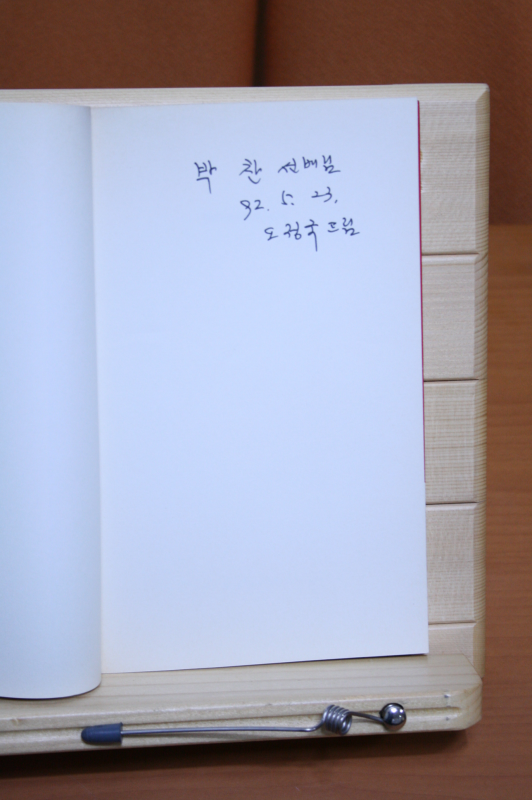 박 찬 선배님
92. 5. 23.
오정국 드림